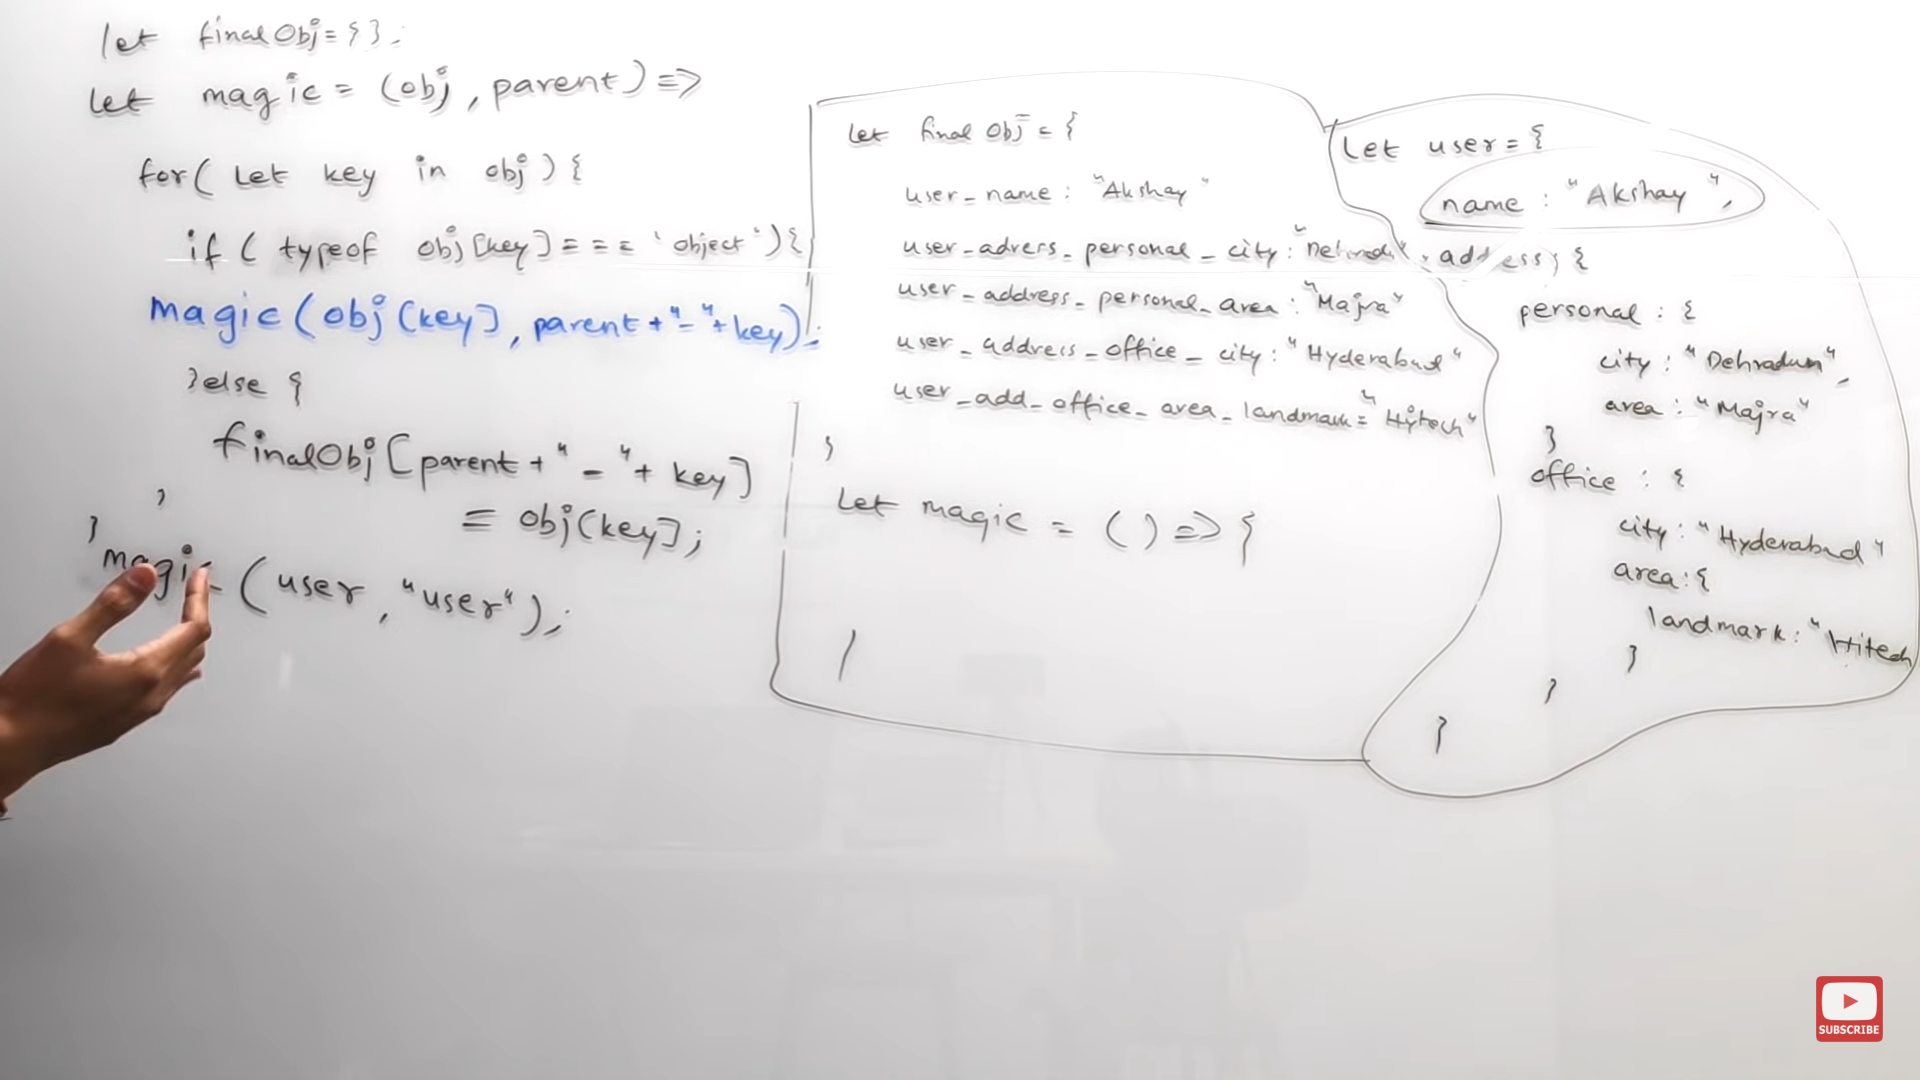 let finalObj = { };
let magic = (obj, parent) =>
for( Let key in obj ) {
if ( typeof obj[key] === 'object') {
magic (obj[key], parent + "_" + key);
} else {
finalObj [parent + "_" + key]
= obj[key];
}
}
magic (user, "user");
let final Obj = {
user_name : "Akshay"
user_adress_personal_city : "Dehradu"
user_address_personal_area : "Majra"
user_address_office_city : "Hyderabad"
user_add_office_area_landmark = "Hitech"
}
Let magic = ( ) => {
}
Let user = {
name : "Akshay",
address : {
personal : {
city : "Dehradun",
area : "Majra"
}
office : {
city : "Hyderabad"
area : {
landmark : "Hitech
}
}
}
SUBSCRIBE